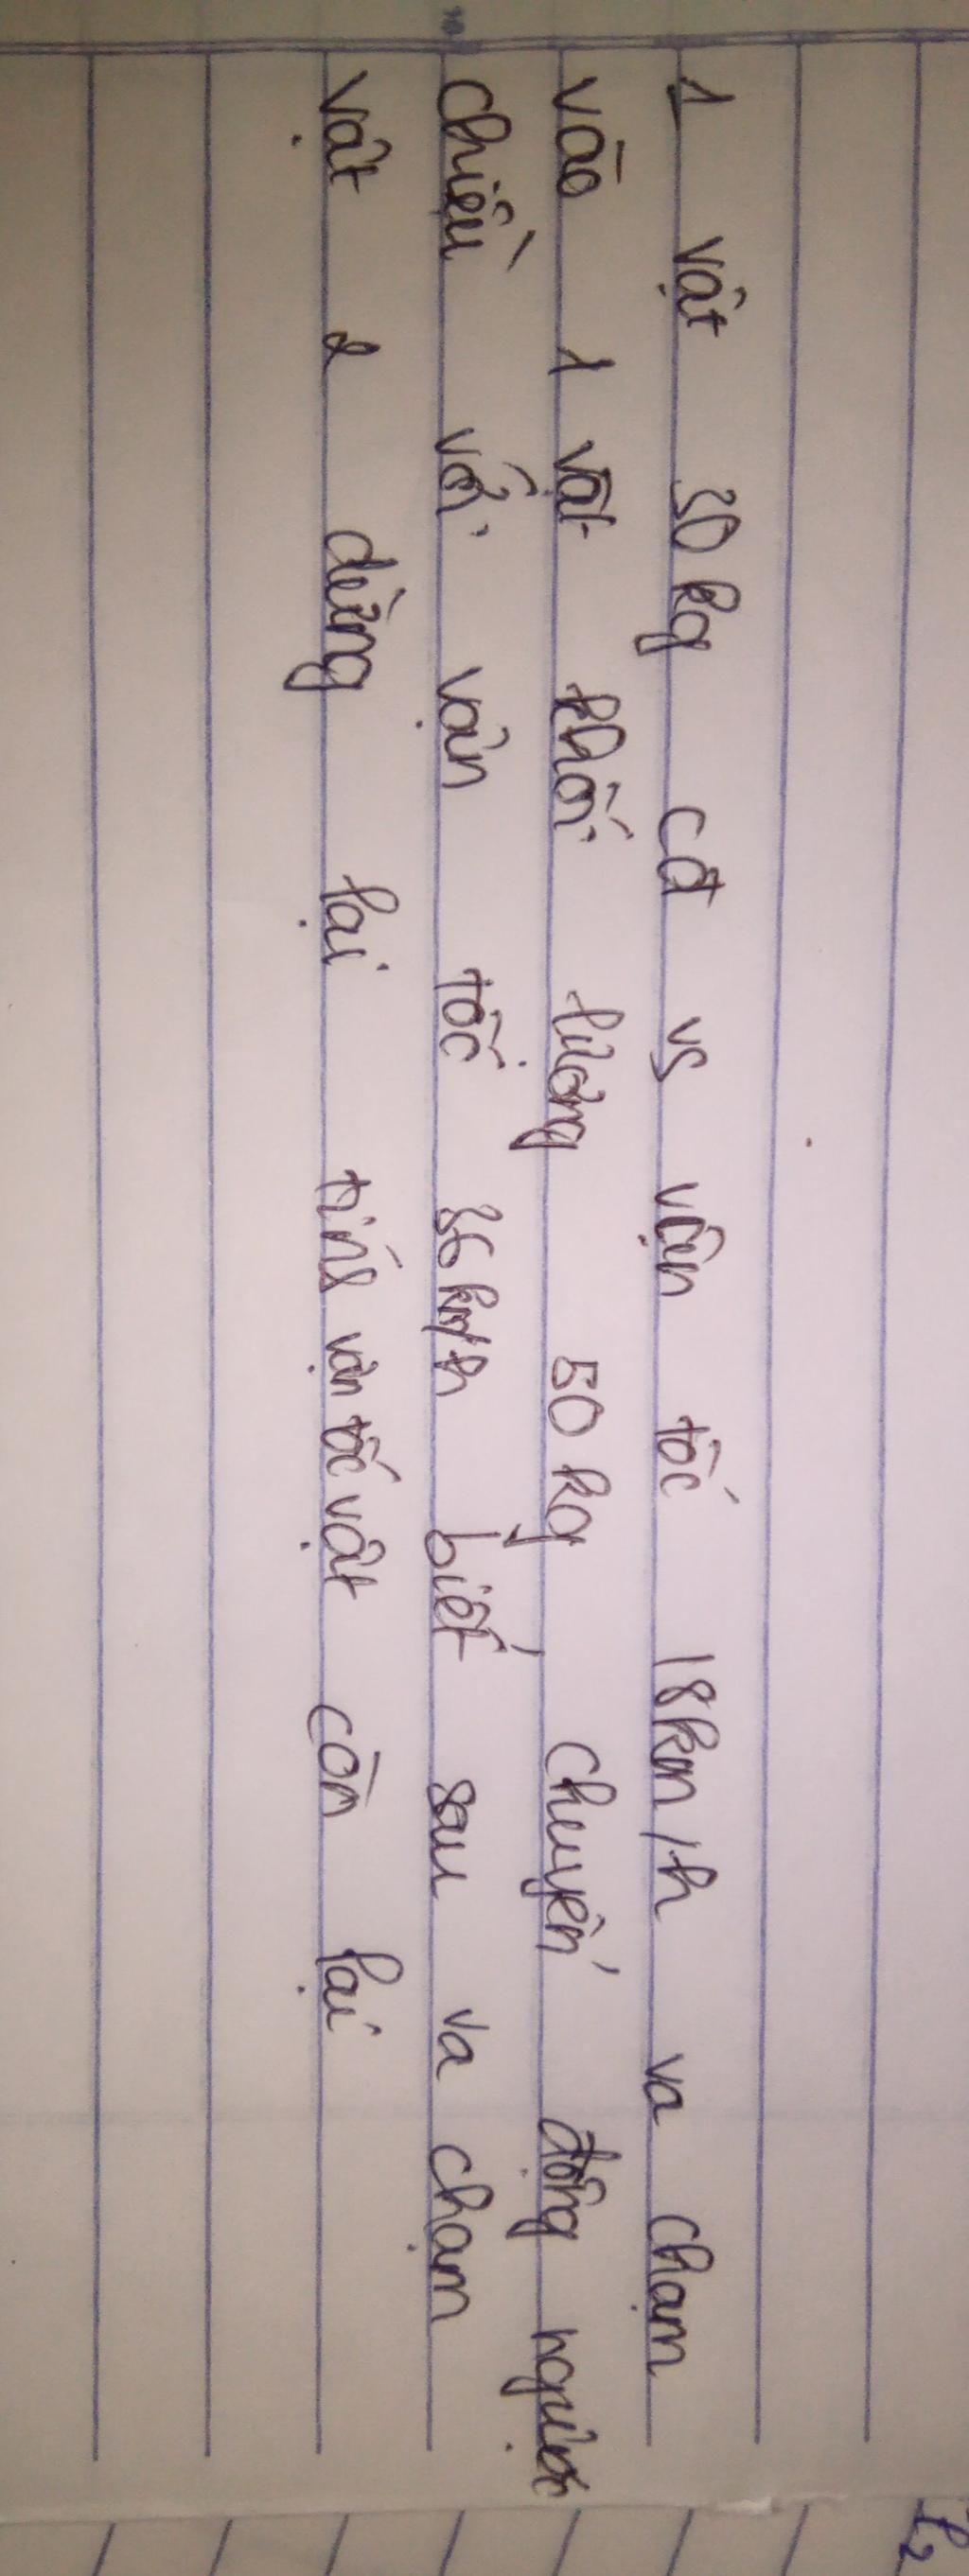 1 vật 30 kg cđ vs vận tốc 18km/h va chạm
vào 1 vật khối lượng 50 kg chuyển động ngược
chiều với vận tốc 36km/h biết sau va chạm
vật 2 dừng lại tính vận tốc vật còn lại